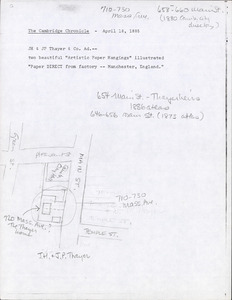 710-750
Mass Ave.
658-660 Main St.
(1880 Camb. city
directory)
The Cambridge Chronicle - April 18, 1885
JH & JP Thayer & Co. Ad.--
two beautiful "Artistic Paper Hangings" illustrated
"Paper DIRECT from factory -- Manchester, England."
654 Main St. - Thayer heirs
1886 atlas
646-656 Main St. (1873 atlas)
MAIN ST
710-750
Mass Ave.
760 Mass Ave. ?
The Thayer
home
TEMPLE ST.
J.H. & J.P. Thayer